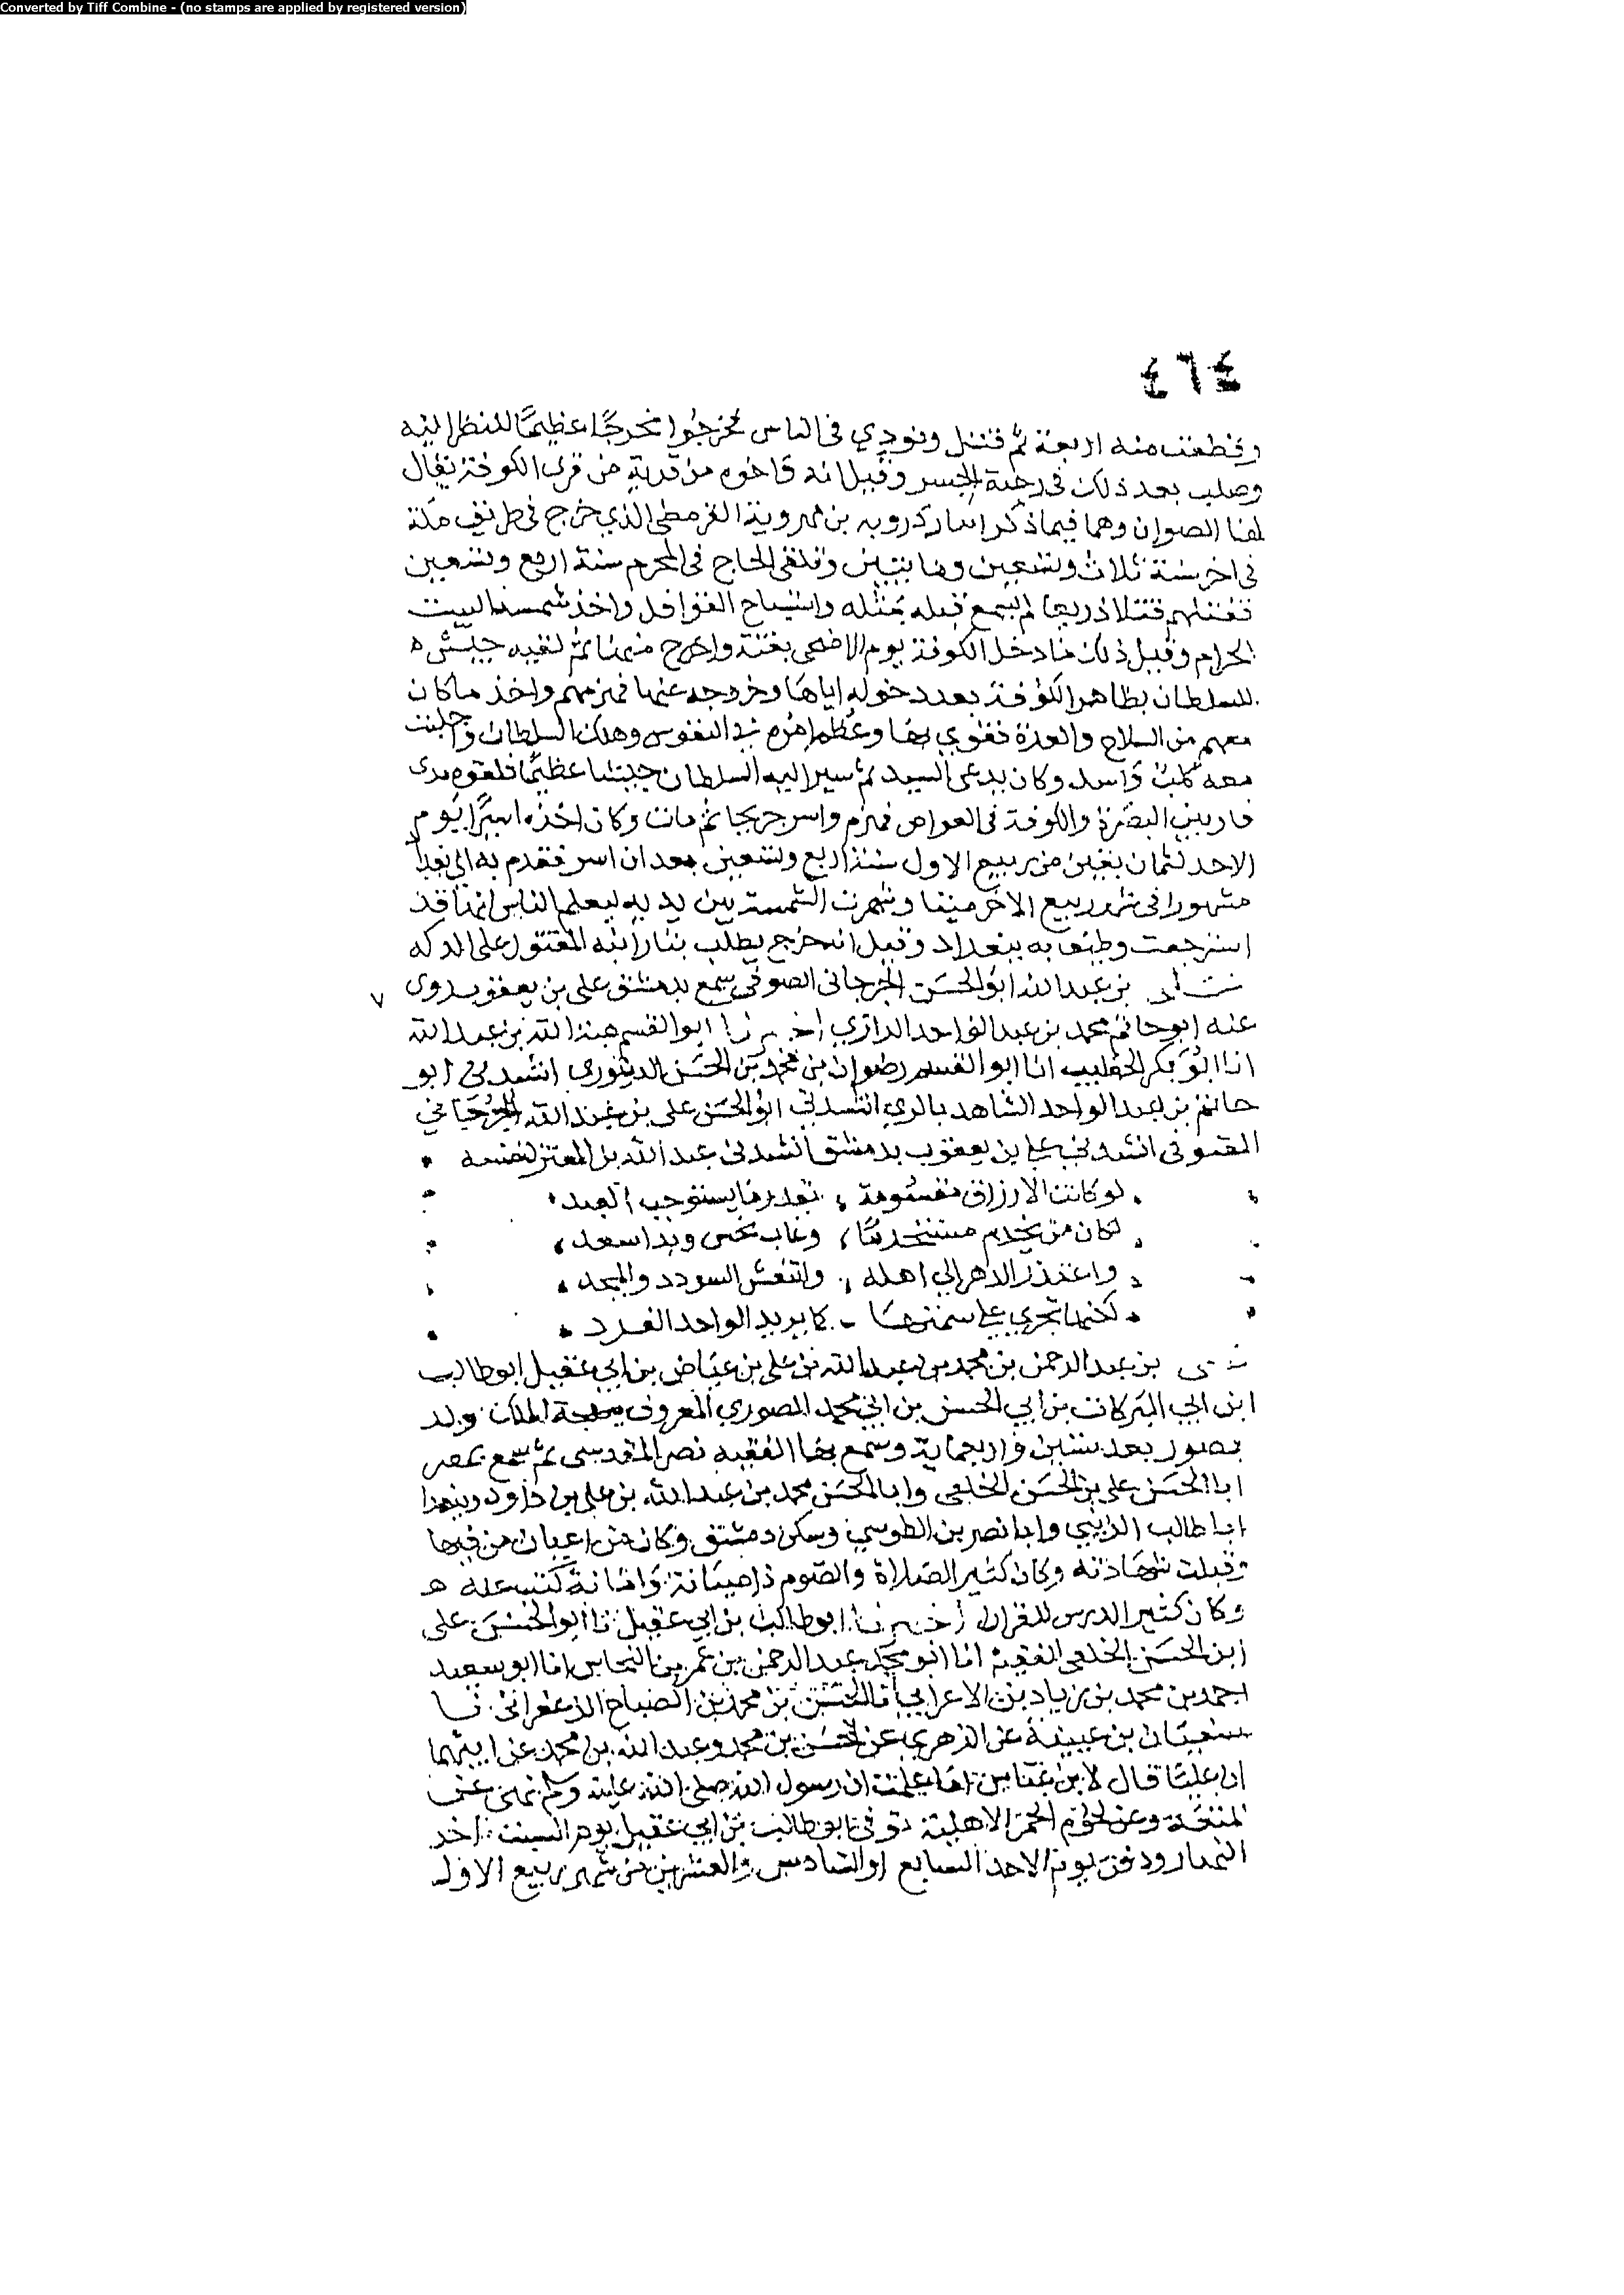 Converted by Tiff Combine - (no stamps are applied by registered version)
٤٦٤
وقطعت منه اربعة ثم قتل ونودي في الناس فخرجوا مخرجا عظيمًا للنظر اليه
وصلب بعد ذلك في رحبة الجسر وقيل انه واخوه من قرية من قرى الكوفة يقال
لها الصوان وهما فيما ذكر ابنا زكرويه بن مهروية القرمطي الذي خرج في طريق مكة
في اخر سنة ثلاث وتسعين ومايتين وتلقى الحاج في المحرم سنة اربع وتسعين
فقتلهم قتلا ذريعا لم يسمع قبله بمثله واستباح القوافل واخذ شمسة البيت
الحرام وقبل ذلك ما دخل الكوفة يوم الاضحى بغتة واخرج منها ثم لقيه جيش ه
للسلطان بظاهر الكوفة بعد دخوله اياها وخروجه عنها فهزمهم واخذ ما كان
معهم من السلاح والعدة فقوي بها وعظم امره في النفوس وهال السلطان واجلبت
معه كلب واسد وكان يدعى السيد ثم سير اليه السلطان جيشا عظيمًا فلقوه بذى
قار بين البصرة والكوفة في العراض فهزم واسر جريحا ثم مات وكان اخذه اسيرًا يوم
الاحد لثمان بقين من ربيع الاول سنة اربع وتسعين بعد ان اسر فقدم به الى بغداد
مشهورا في شهر ربيع الاخر ميتا وشهرت الشمسة بين يديه ليعلم الناس انها قد
استرجعت وطيف به ببغداد وقيل انه خرج يطلب بثار ابنه المقتول على الدكه
بن عبد الله ابو الحسن الجرجاني الصوفي سمع بدمشق علي بن يعقوب روى
عنه ابو حاتم محمد بن عبد الواحد الرازي اخبرنا ابو القسم هبة الله بن عبد الله
انا ابو بكر الخطيب انا ابو القسم رضوان بن محمد بن الحسن الدينوري انشدني ابو
حاتم بن عبد الواحد الشاهد بالري انشدني ابو الحسن علي بن عبد الله الجرجاني
الصوفي انشدني علي بن يعقوب بدمشق انشدني عبد الله بن المعتز لنفسه
لو كانت الارزاق مقسومة بقدر ما يستوجب العبد
لكان من يخدم مستخدمًا وغاب نحس وبدا سعد
واعتذر الدهر الى اهله وانتعش السودد والمجد
لكنها تجري على سمتها كما يريد الواحد الفرد
بن عبد الرحمن بن محمد بن عبد الله بن علي بن عياض بن ابي عقيل ابو طالب
ابن ابي البركات بن ابي الحسن بن ابي محمد الصوري المعروف ببهجة الملك ولد
بصور بعد ستين واربعماية وسمع بها الفقيه نصر المقدسي ثم سمع بمصر
ابا الحسن علي بن الحسن الخلعي وابا الحسن محمد بن عبد الله بن علي بن داود وبغدا
ابا طالب الزينبي وابا نصر بن الطوسي وسكن دمشق وكان من اعيان من فيها
وقبلت شهادته وكان كثير الصلاة والصوم ذا صيانة وامانة كتبت عنه ه
وكان كثير الدرس للقران اخبرنا ابو طالب بن ابي عقيل نا ابو الحسن علي
ابن الحسن الخلعي الفقيه انا ابو محمد عبد الرحمن بن عمر بن النحاس انا ابو سعيد
احمد بن محمد بن زياد بن الاعرابي نا الحسن بن محمد بن الصباح الزعفراني نا
سفيان بن عيينة عن الزهري عن الحسن بن محمد وعبد الله بن محمد عن ابيهما
ان عليًا قال لابن عباس اما علمت ان رسول الله صلى الله عليه وسلم نهى عن
المتعة وعن لحوم الحمر الاهلية توفي ابو طالب بن ابي عقيل يوم السبت اخر
النهار ودفن يوم الاحد السابع او السادس والعشرين من شهر ربيع الاول